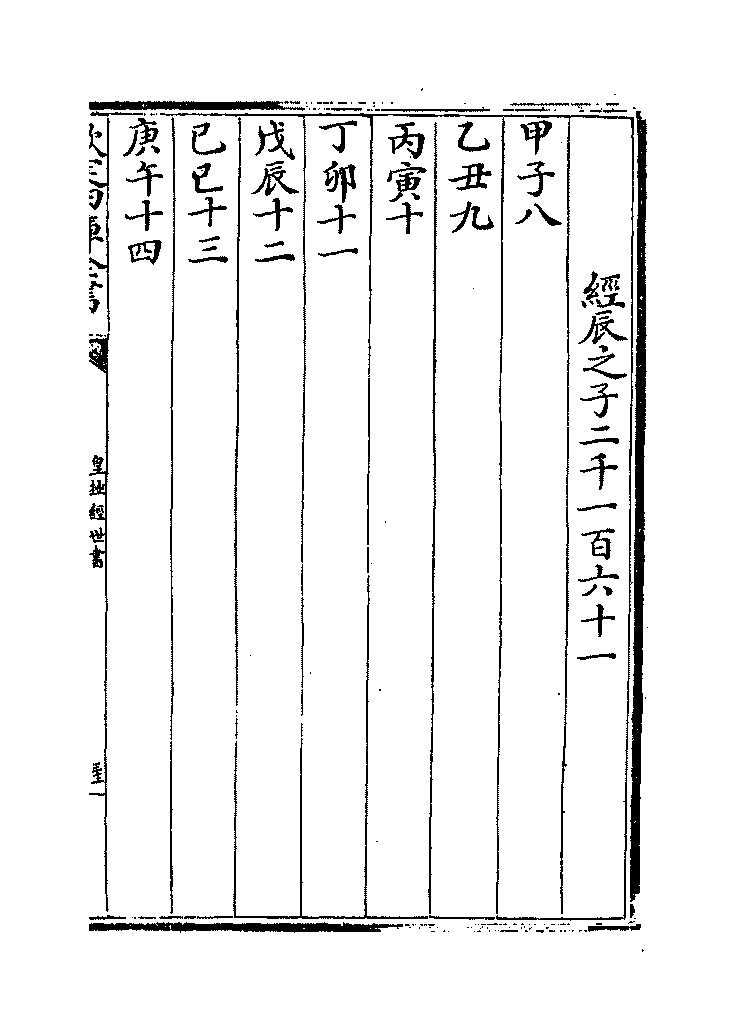 經辰之子二千一百六十一
甲子八
乙丑九
丙寅十
丁卯十一
戊辰十二
己巳十三
庚午十四
欽定四庫全書
皇極經世書